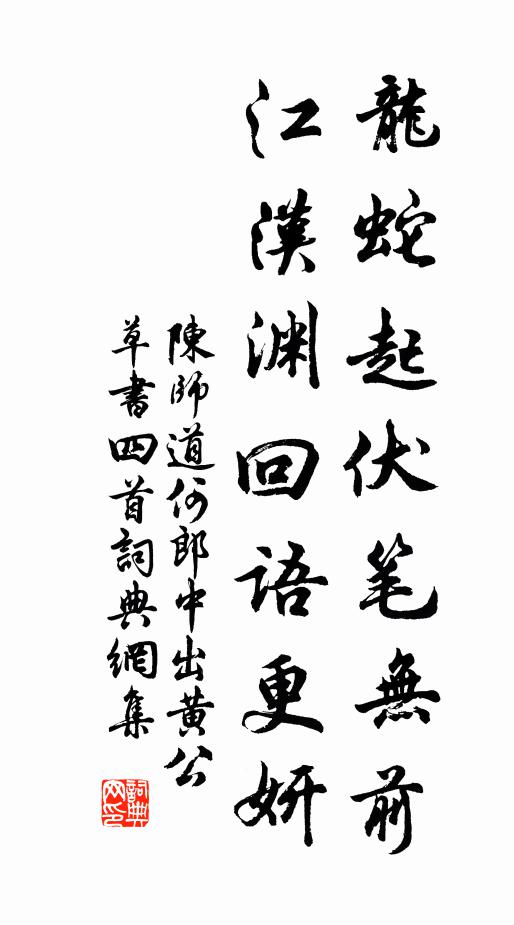 龍蛇起伏笔無前
江漢渊回語更妍
陳師道何郎中出黃公
草書四首詞典網集
詞典网印